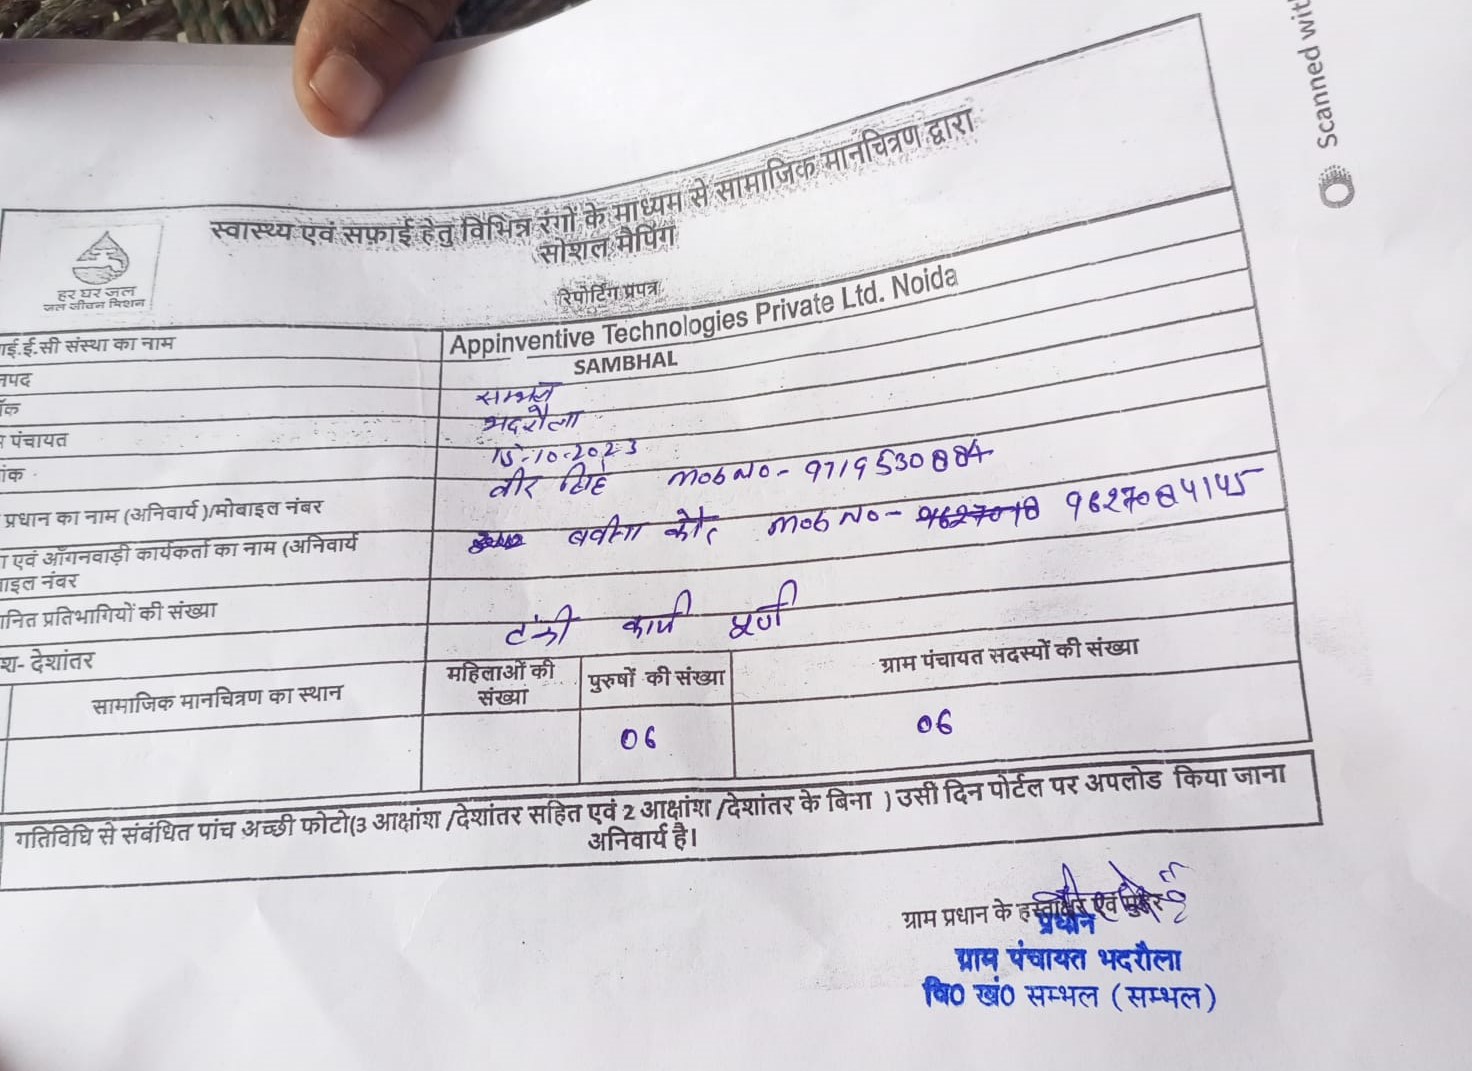 Scanned wit
स्वास्थ्य एवं सफ़ाई हेतु विभिन्न रंगों के माध्यम से सामाजिक मानचित्रण द्वारा
सोशल मैपिंग
हर घर जल
जल जीवन मिशन
रिपोर्टिंग प्रपत्र
ाई.ई.सी संस्था का नाम Appinventive Technologies Private Ltd. Noida
नपद SAMBHAL
ॉक सम्भल
पंचायत भदरौला
ांक 15-10-2023
प्रधान का नाम (अनिवार्य)/मोबाइल नंबर वीर सिंह mob No- 9719530884
ा एवं आँगनवाड़ी कार्यकर्ता का नाम (अनिवार्य बबीता कौर mob No- 9627084145
ाइल नंबर
ानित प्रतिभागियों की संख्या
श- देशांतर टंकी कार्य पूर्ण
सामाजिक मानचित्रण का स्थान महिलाओं की संख्या पुरुषों की संख्या ग्राम पंचायत सदस्यों की संख्या
06 06
गतिविधि से संबंधित पांच अच्छी फोटो(3 आक्षांश /देशांतर सहित एवं 2 आक्षांश /देशांतर के बिना ) उसी दिन पोर्टल पर अपलोड किया जाना
अनिवार्य है।
ग्राम प्रधान के हस्ताक्षर एवं मुहर
प्रधान
ग्राम पंचायत भदरौला
वि0 खं0 सम्भल (सम्भल)